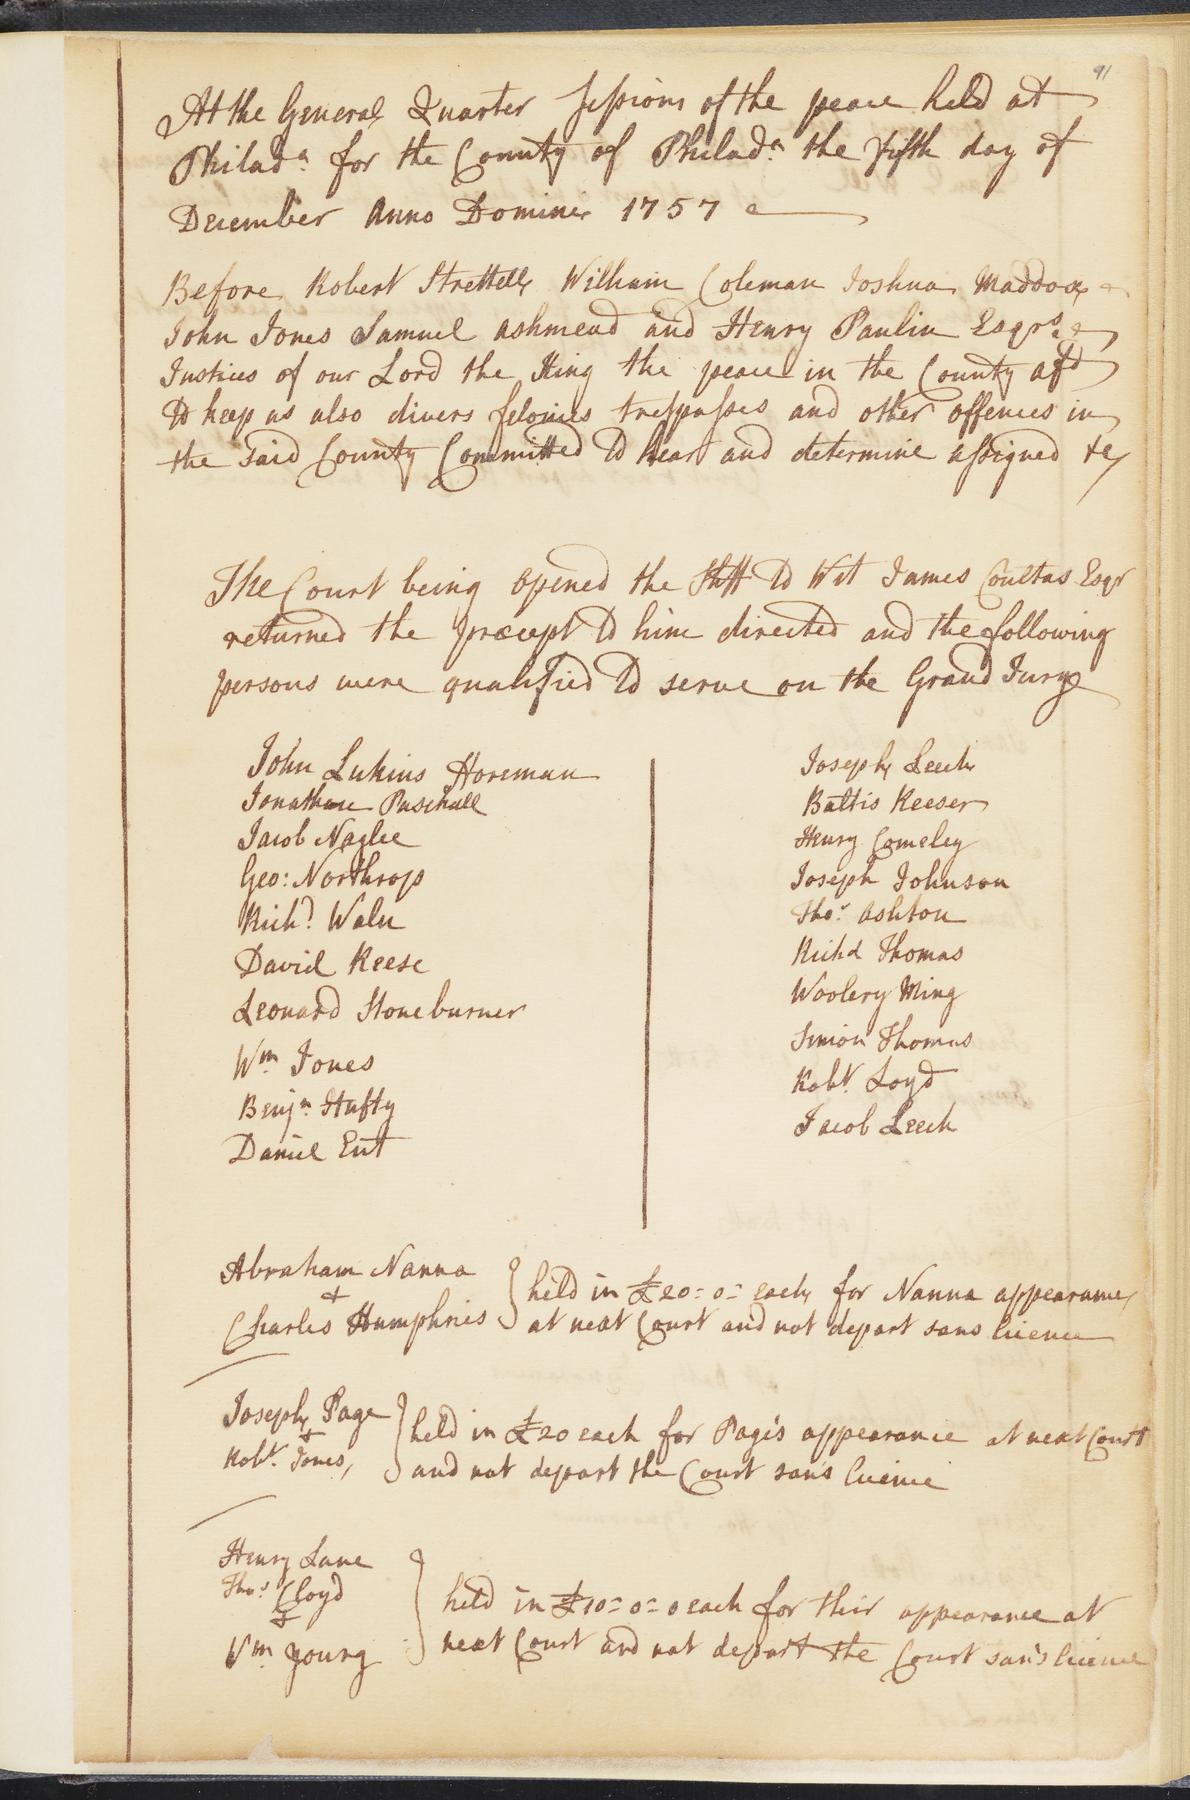 91
At the General Quarter Sessions of the peace held at
Philada. for the County of Philada. the fifth day of
December Anno Domini 1757
Before Robert Strettell William Coleman Joshua Maddox
John Jones Samuel Ashmead and Henry Paulin Esqrs.
Justices of our Lord the King the peace in the County afd
to keep as also divers felonies trespasses and other offences in
the said County Committed to hear and determine assigned &c
The Court being opened the Shff to Wit James Coultas Esqr
returned the præcept to him directed and the following
persons were qualified to serve on the Grand Jury
John Lukins Foreman
Jonathan Paschall
Jacob Naglee
Geo: Northrop
Richd. Waln
David Reese
Leonard Stoneburner
Wm. Jones
Benjn. Hufty
Daniel Ent
Joseph Leech
Baltis Reeser
Henry Comeley
Joseph Johnson
Thos. Ashton
Richd Thomas
Woolery Ming
Simon Thomas
Robt. Loyd
Jacob Leech
Abraham Nanna
&
Charles Humphries
held in £20=0= each for Nanna appearance
at next Court and not depart sans licence
Joseph Page
&
Robt. Jones,
held in £20 each for Page's appearance at next Court
and not depart the Court sans licence
Henry Lane
Thos. Cloyd
&
Wm. Young
held in £10=0=0 each for their appearance at
next Court and not depart the Court sans licence